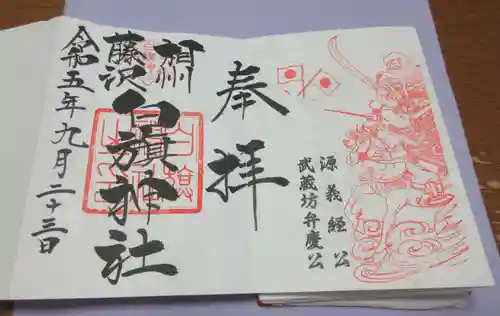 奉拝
相州
藤沢
白旗神社
令和五年九月二十三日
源義経公
武蔵坊弁慶公